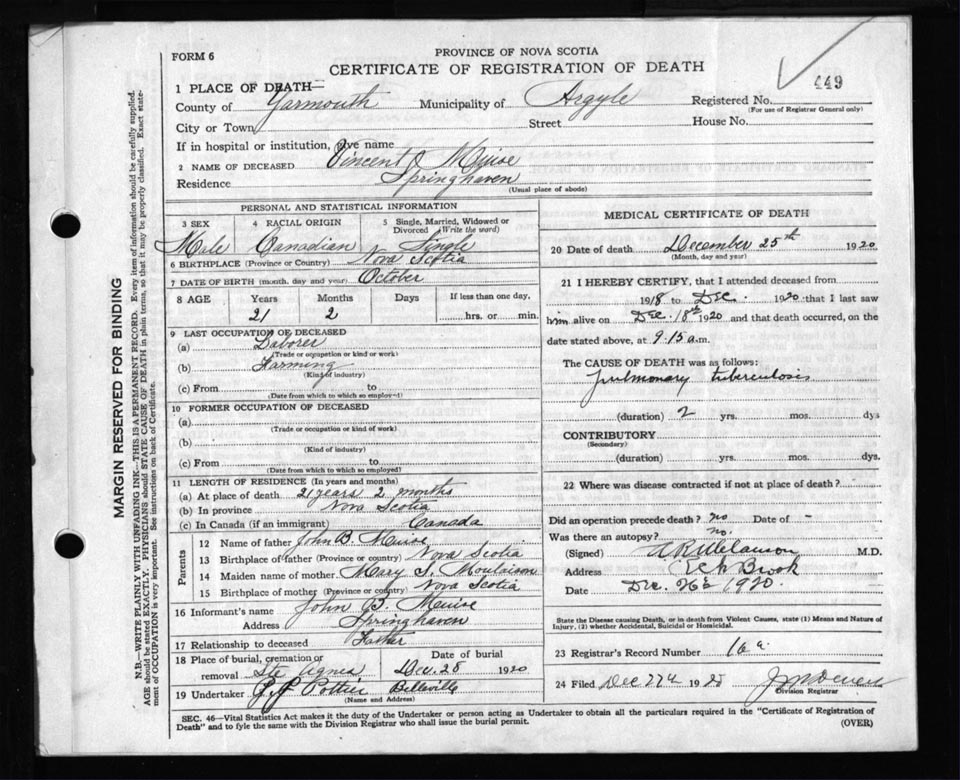 449
FORM 6
PROVINCE OF NOVA SCOTIA
CERTIFICATE OF REGISTRATION OF DEATH
1 PLACE OF DEATH—
County of Yarmouth Municipality of Argyle Registered No.
(For use of Registrar General only)
City or Town Street House No.
If in hospital or institution, give name
2 NAME OF DECEASED Vincent J Muise
Residence Springhaven
(Usual place of abode)
PERSONAL AND STATISTICAL INFORMATION
3 SEX 4 RACIAL ORIGIN 5 Single, Married, Widowed or
Divorced (Write the word)
Male Canadian Single
6 BIRTHPLACE (Province or Country) Nova Scotia
7 DATE OF BIRTH (month, day and year) October
8 AGE Years Months Days If less than one day,
21 2 hrs. or min.
9 LAST OCCUPATION OF DECEASED
(a) Laborer
(Trade or occupation or kind or work)
(b) Farming
(Kind of industry)
(c) From to
(Date from which to which so employed)
10 FORMER OCCUPATION OF DECEASED
(a)
(Trade or occupation or kind of work)
(b)
(Kind of industry)
(c) From to
(Date from which to which so employed)
11 LENGTH OF RESIDENCE (In years and months)
(a) At place of death 21 years 2 months
(b) In province Nova Scotia
(c) In Canada (if an immigrant) Canada
Parents
12 Name of father John B. Muise
13 Birthplace of father (Province or country) Nova Scotia
14 Maiden name of mother Mary S. Moulaison
15 Birthplace of mother (Province or country) Nova Scotia
16 Informant's name John B. Muise
Address Springhaven
17 Relationship to deceased Father
18 Place of burial, cremation or Date of burial
removal Ste Agnes Dec. 28 1920
19 Undertaker Pottier Belleville
(Name and Address)
MEDICAL CERTIFICATE OF DEATH
20 Date of death December 25th 1920
(Month, day and year)
21 I HEREBY CERTIFY, that I attended deceased from
1918 to Dec. 1920 that I last saw
him alive on Dec. 18th 1920 and that death occurred, on the
date stated above, at 9.15 a.m.
The CAUSE OF DEATH was as follows:
pulmonary tuberculosis
(duration) 2 yrs. mos. dys
CONTRIBUTORY
(Secondary)
(duration) yrs. mos. dys.
22 Where was disease contracted if not at place of death?
Did an operation precede death? no Date of –
Was there an autopsy? no.
(Signed) M.D.
Address Eel Brook
Date Dec. 26 1920.
State the Disease causing Death, or in death from Violent Causes, state (1) Means and Nature of
Injury, (2) whether Accidental, Suicidal or Homicidal.
23 Registrar's Record Number 16
24 Filed Dec 27th 19
Division Registrar
SEC. 46—Vital Statistics Act makes it the duty of the Undertaker or person acting as Undertaker to obtain all the particulars required in the "Certificate of Registration of
Death" and to fyle the same with the Division Registrar who shall issue the burial permit.
(OVER)
MARGIN RESERVED FOR BINDING
N.B.—WRITE PLAINLY WITH UNFADING INK—THIS IS A PERMANENT RECORD. Every item of information should be carefully supplied.
AGE should be stated EXACTLY. PHYSICIANS should STATE CAUSE OF DEATH in plain terms, so that it may be properly classified. Exact state-
ment of OCCUPATION is very important. See instructions on back of Certificate.